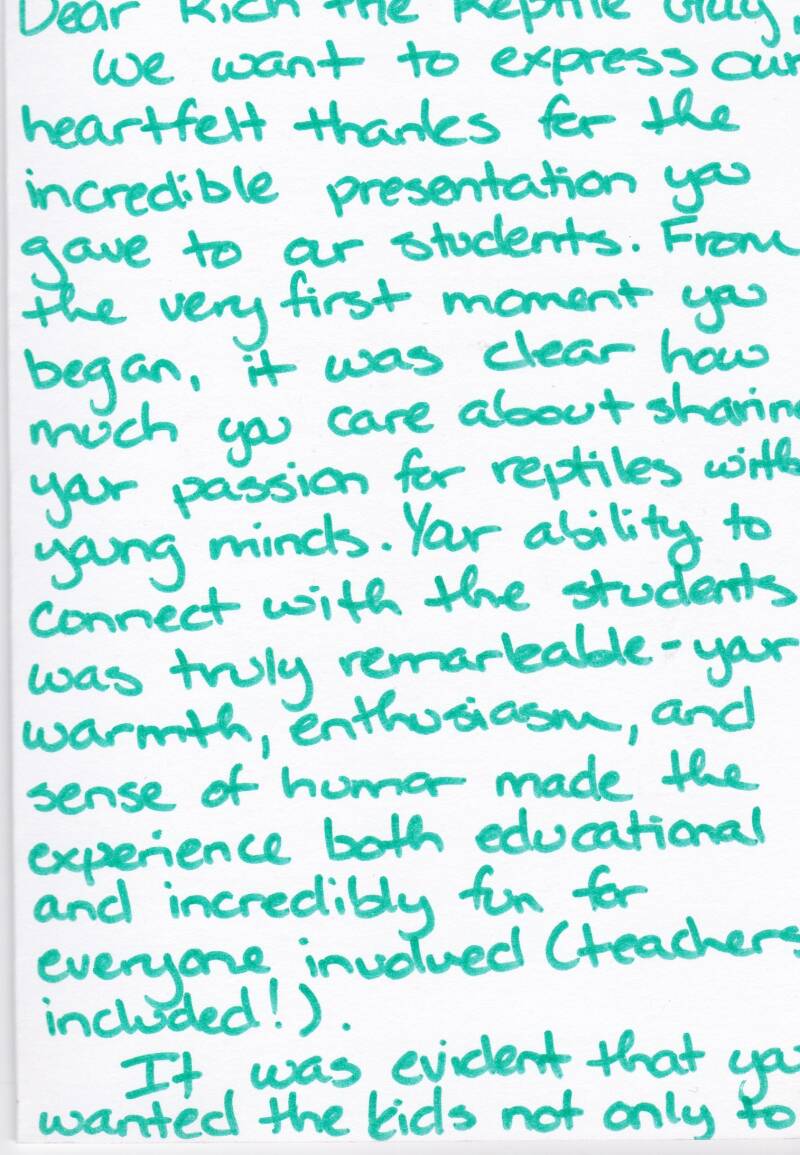 Dear Rich the Reptile Guy,
We want to express our
heartfelt thanks for the
incredible presentation you
gave to our students. From
the very first moment you
began, it was clear how
much you care about sharing
your passion for reptiles with
young minds. Your ability to
connect with the students
was truly remarkable - your
warmth, enthusiasm, and
sense of humor made the
experience both educational
and incredibly fun for
everyone involved (teachers
included!).
It was evident that you
wanted the kids not only to